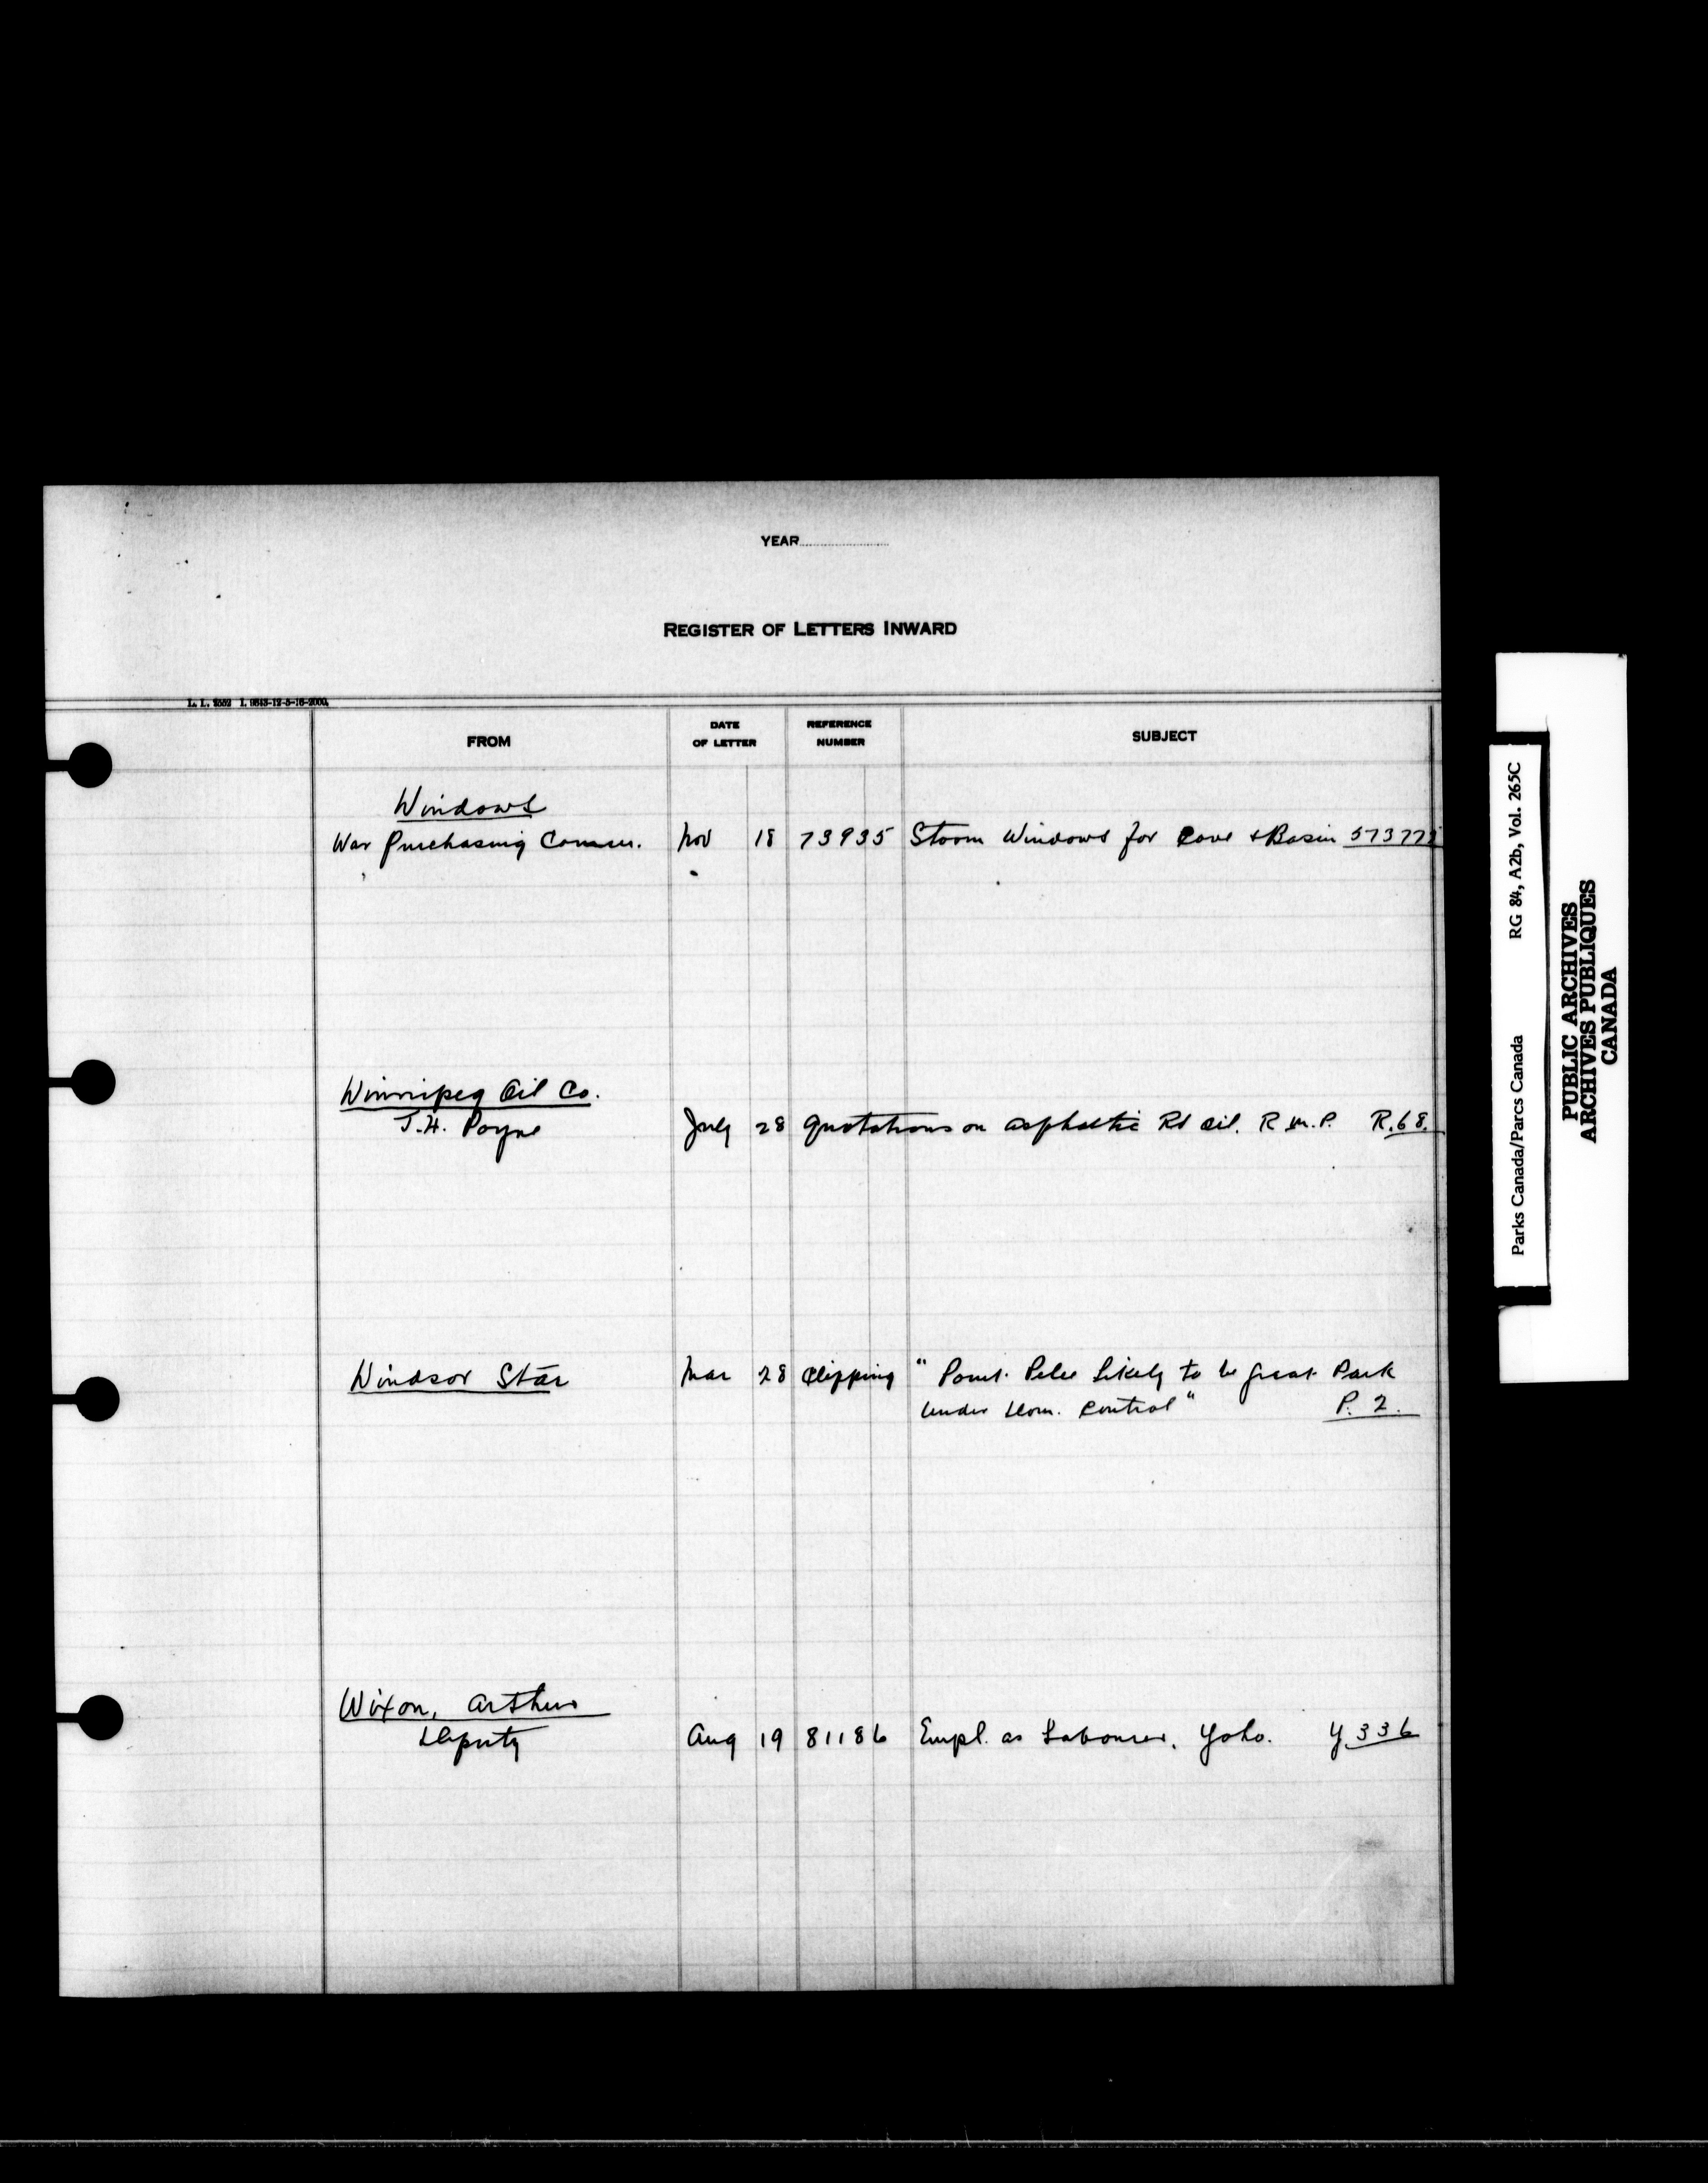 YEAR
REGISTER OF LETTERS INWARD
L. L. 2552 I. 9843-12-5-16-2000.
FROM DATE OF LETTER REFERENCE NUMBER SUBJECT
Windows
War Purchasing Commn. Nov 18 73935 Storm Windows for Cave & Basin 57377
Winnipeg Oil Co.
J.H. Payne July 28 Quotations on asphaltic Rd Oil. R.M.P. R.68.
Windsor Star Mar 28 Clipping "Point Pelee Likely to be great Park
Under Dom. Control" P. 2.
Wixon, Arthur
Deputy Aug 19 81186 Empl. as Labourer, Yoho. Y 336
Parks Canada/Parcs Canada RG 84, A2b, Vol. 265C
PUBLIC ARCHIVES
ARCHIVES PUBLIQUES
CANADA